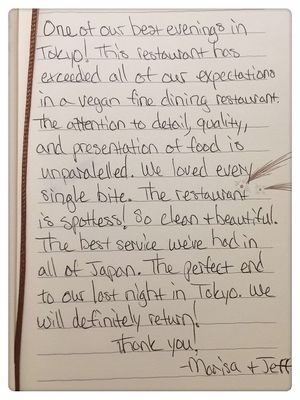 One of our best evenings in
Tokyo! This restaurant has
exceeded all of our expectations
in a vegan fine dining restaurant.
The attention to detail, quality,
and presentation of food is
unparalelled. We loved every
single bite. The restaurant
is spotless! So clean + beautiful.
The best service we've had in
all of Japan. The perfect end
to our last night in Tokyo. We
will definitely return!
Thank you!
-Marisa + Jeff